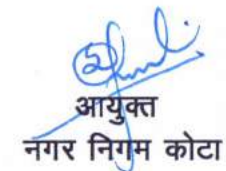 आयुक्त
नगर निगम कोटा